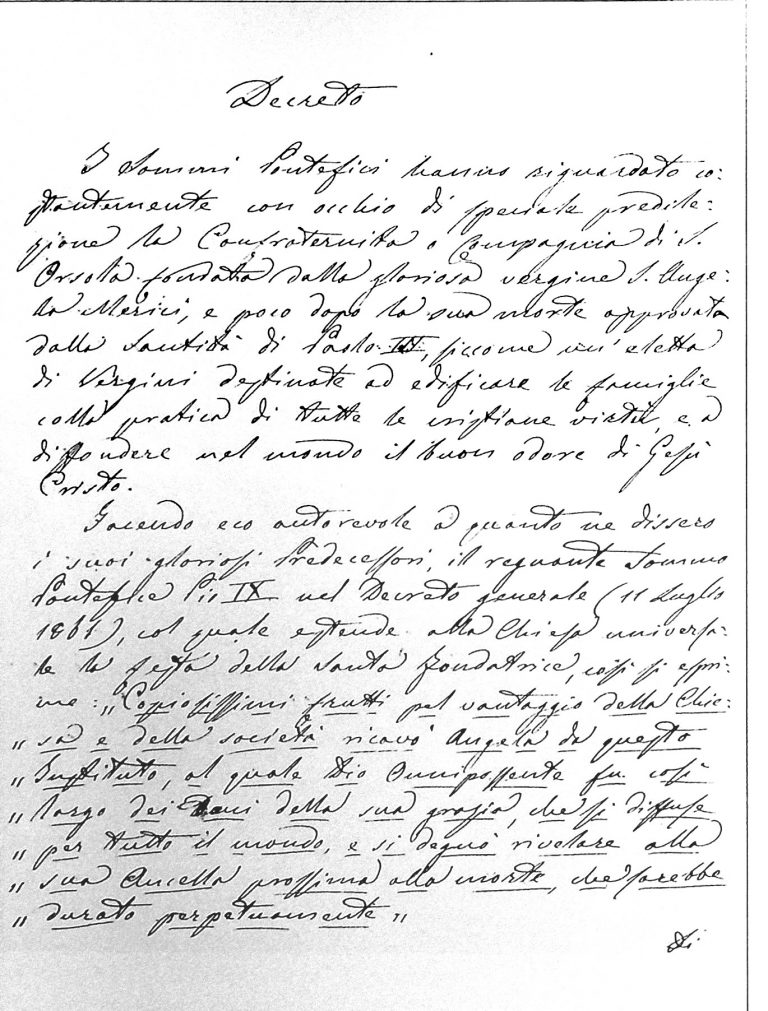 Decreto
I Sommi Pontefici hanno riguardato co:
stantemente con occhio di speciale predile:
zione la Confraternita o Compagnia di S.
Orsola fondata dalla gloriosa vergine S. Ange:
la Merici, e poco dopo la sua morte approvata
dalla Santità di Paolo III, siccome un'eletta
di Vergini destinate ad edificare le famiglie
colla pratica di tutte le cristiane virtù, e a
diffondere nel mondo il buon odore di Gesù
Cristo.
Facendo eco autorevole a quanto ne dissero
i suoi gloriosi Predecessori, il regnante Sommo
Pontefice Pio IX nel Decreto generale (11 Luglio
1861), col quale estende alla Chiesa universa:
le la festa della Santa Fondatrice, così si espri:
me: „Copiosissimi frutti pel vantaggio della Chie:
„ sa e della società ricavò Angela da questo
„ Instituto, al quale Dio Onnipossente fu così
„ largo dei Doni della sua grazia, che si diffuse
„ per tutto il mondo, e si degnò rivelare alla
„ sua Ancella prossima alla morte, che sarebbe
„ durato perpetuamente „
Di